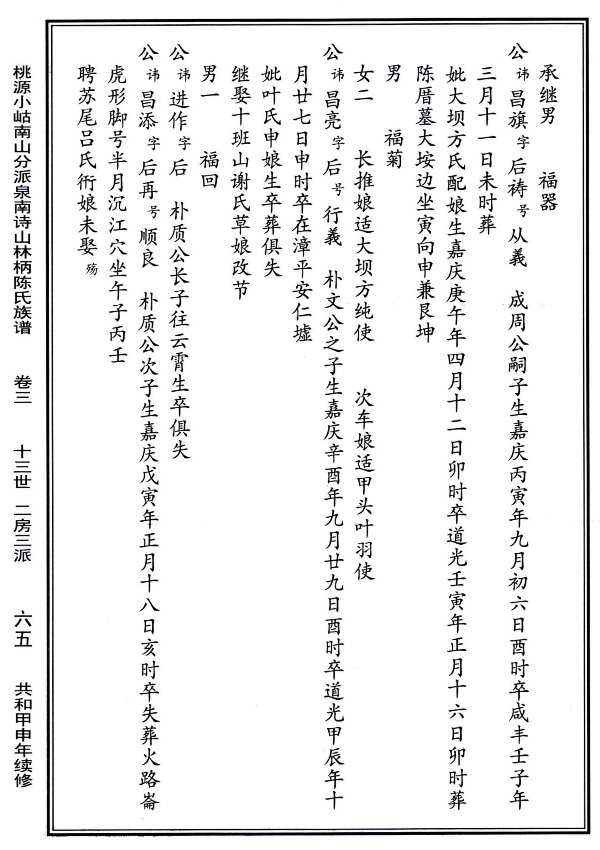 承继男　福器
公讳昌旗字后祷号从義　成周公嗣子生嘉庆丙寅年九月初六日酉时卒咸丰壬子年
三月十一日未时葬
妣大坝方氏配娘生嘉庆庚午年四月十二日卯时卒道光壬寅年正月十六日卯时葬
陈厝墓大垵边坐寅向申兼艮坤
男　福菊
女二　长推娘适大坝方纯使　次车娘适甲头叶羽使
公讳昌亮字后号行義　朴文公之子生嘉庆辛酉年九月廿九日酉时卒道光甲辰年十
月廿七日申时卒在漳平安仁墟
妣叶氏申娘生卒葬俱失
继娶十班山谢氏草娘改节
男一　福回
公讳进作字后　朴质公长子往云霄生卒俱失
公讳昌添字后再号顺良　朴质公次子生嘉庆戊寅年正月十八日亥时卒失葬火路崙
虎形脚号半月沉江穴坐午子丙壬
聘苏尾吕氏衎娘未娶殇
桃源小岵南山分派泉南诗山林柄陈氏族谱　卷三　十三世　二房三派　六五　共和甲申年续修